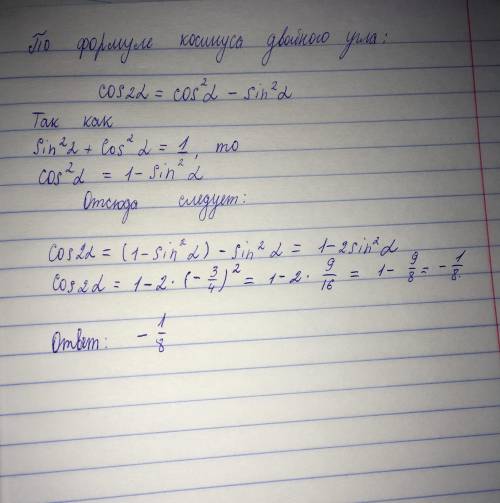 По формуле косинуса двойного угла:
cos2α = cos²α - sin²α
Так как
sin²α + cos²α = 1, то
cos²α = 1 - sin²α
Отсюда следует:
cos2α = (1 - sin²α) - sin²α = 1 - 2sin²α
cos2α = 1 - 2 · (-3/4)² = 1 - 2 · 9/16 = 1 - 9/8 = -1/8.
Ответ: -1/8